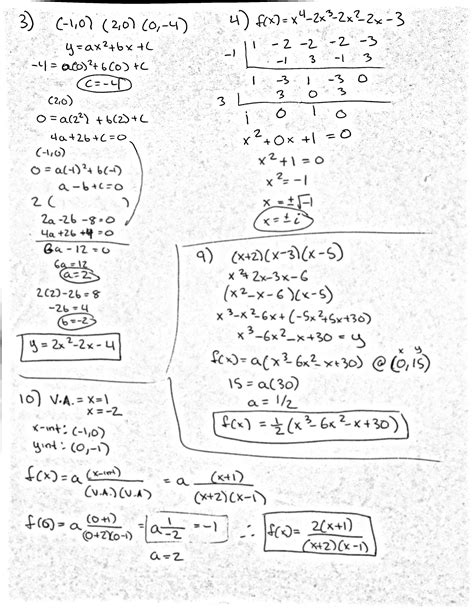 3) (-1,0) (2,0) (0,-4)
y=ax²+bx+c
-4=a(0)²+b(0)+c
c=-4
(2,0)
0=a(2²)+b(2)+c
4a+2b+c=0
(-1,0)
0=a(-1)²+b(-1)
a-b+c=0
2(      )
2a-2b-8=0
4a+2b+4=0
6a-12=0
6a=12
a=2
2(2)-2b=8
-2b=4
b=-2
y=2x²-2x-4
4) f(x)=x⁴-2x³-2x²-2x-3
-1 | 1 -2 -2 -2 -3
-1 3 -1 3
1 -3 1 -3 0
3 | 3 0 3
1 0 1 0
x²+0x+1=0
x²+1=0
x²=-1
x=±√-1
x=±i
9) (x+2)(x-3)(x-5)
x²+2x-3x-6
(x²-x-6)(x-5)
x³-x²-6x+(-5x²+5x+30)
x³-6x²-x+30=y
f(x)=a(x³-6x²-x+30) @ (0,15)
x y
15=a(30)
a=1/2
f(x)=½(x³-6x²-x+30)
10) V.A.=x=1
x=-2
x-int: (-1,0)
y int: (0,-1)
f(x)=a (x-int)/(V.A.)(V.A) = a (x+1)/(x+2)(x-1)
f(0)=a (0+1)/(0+2)(0-1) = a 1/-2 = -1 ∴ f(x)= 2(x+1)/(x+2)(x-1)
a=2